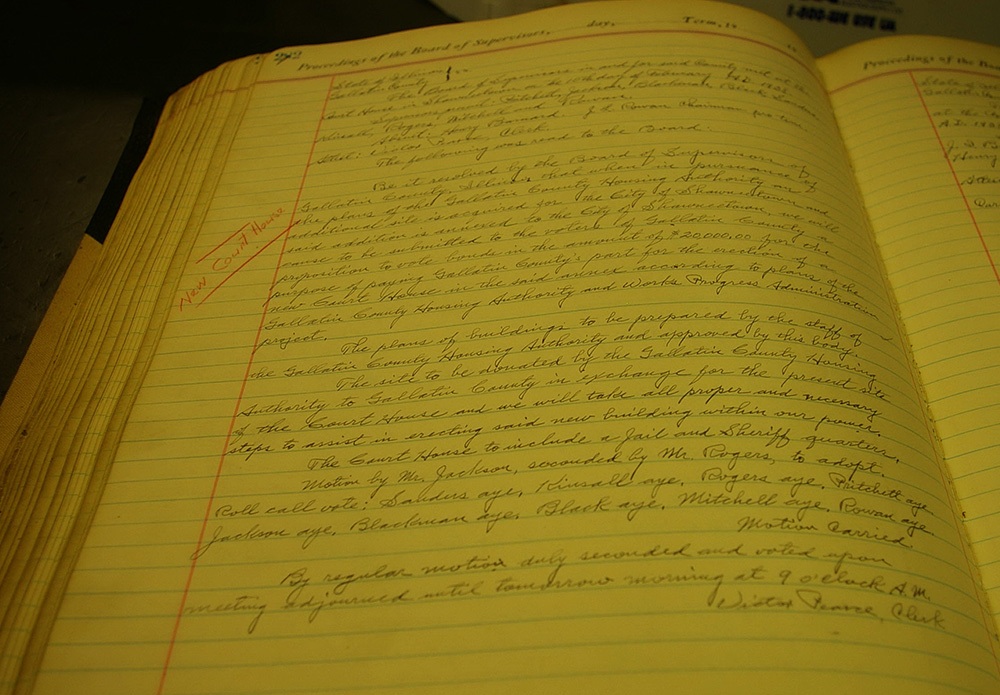 222
Proceedings of the Board of Supervisors, day, Term, 19
State of Illinois
Gallatin County
The Board of Supervisors in and for said County met at the
Court House in Shawneetown on the day of February A.D. 1938
Supervisors present: Pritchett, Jackson, Blackman, Black, Sanders
Kinsall, Rogers, Mitchell and Rowan.
Absent: Henry Barnard. J. L. Rowan Chairman pro tem.
Attest: Victor Pearce, Clerk
The following was read to the Board:
Be it resolved by the Board of Supervisors of
Gallatin County, Illinois that when in pursuance of
the plans of the Gallatin County Housing Authority an
additional site is acquired for the City of Shawneetown and
said addition is annexed to the City of Shawneetown, we will
cause to be submitted to the voters of Gallatin County a
proposition to vote bonds in the amount of $20,000.00 for the
purpose of paying Gallatin County's part for the erection of a
new Court House in the said annex according to plans of the
Gallatin County Housing Authority and Works Progress Administration
project.
New Court House
The plans of buildings to be prepared by the staff of
the Gallatin County Housing Authority and approved by this body.
The site to be donated by the Gallatin County Housing
Authority to Gallatin County in exchange for the present site
of the Court House and we will take all proper and necessary
steps to assist in erecting said new building within our power.
The Court House to include a Jail and Sheriff quarters.
Motion by Mr. Jackson, seconded by Mr. Rogers, to adopt.
Roll call vote: Sanders aye, Kinsall aye, Rogers aye, Pritchett aye
Jackson aye, Blackman aye, Black aye, Mitchell aye, Rowan aye.
Motion Carried.
By regular motion duly seconded and voted upon
meeting adjourned until tomorrow morning at 9 o'clock A.M.
Victor Pearce, Clerk
Proceedings of the Boa
State of
Gallatin
at the
A.D. 193
J. L. R
Henry